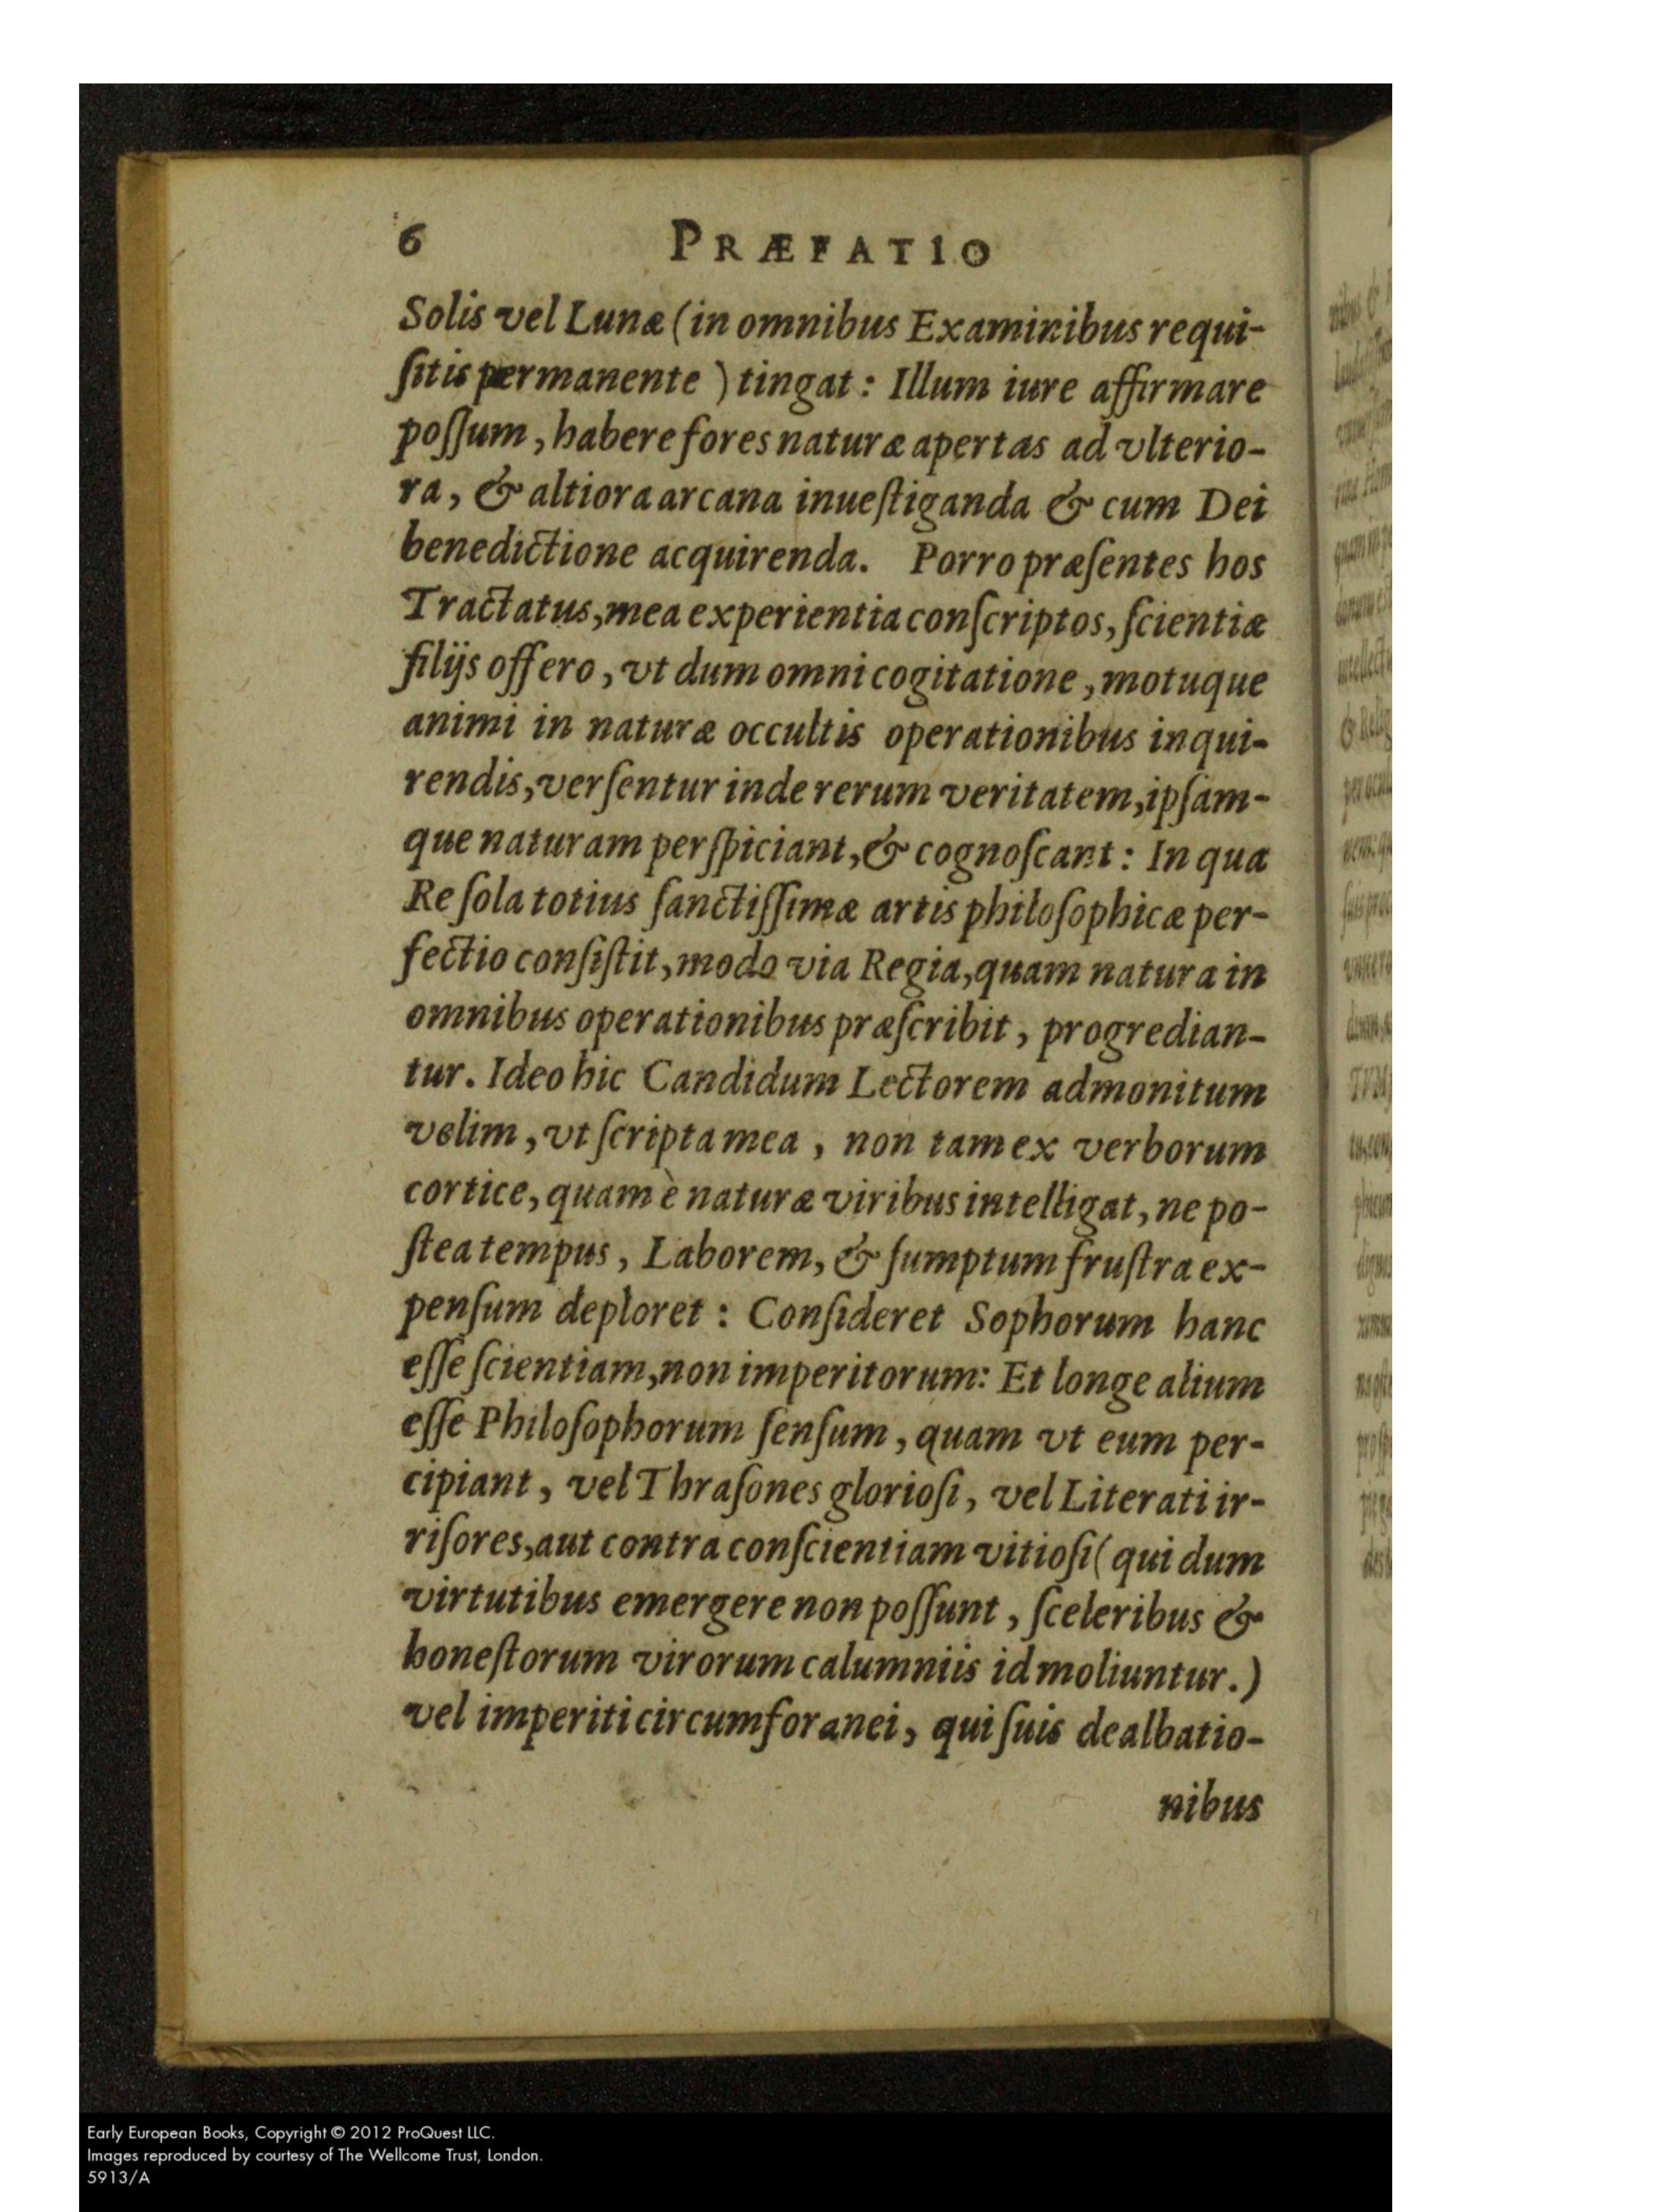 6 PRÆFATIO
Solis vel Lunæ (in omnibus Examinibus requi-
ſitis permanente ) tingat : Illum iure affirmare
poſſum , habere fores naturæ apertas ad vlterio-
ra, & altiora arcana inueſtiganda & cum Dei
benedictione acquirenda. Porro præſentes hos
Tractatus, mea experientia conſcriptos, ſcientiæ
filijs offero , vt dum omni cogitatione , motuque
animi in naturæ occultis operationibus inqui-
rendis, verſentur inde rerum veritatem, ipſam-
que naturam perſpiciant, & cognoſcant : In qua
Re ſola totius ſanctiſſimæ artis philoſophicæ per-
fectio conſiſtit, modo via Regia, quam natura in
omnibus operationibus præſcribit , progredian-
tur. Ideo hic Candidum Lectorem admonitum
velim , vt ſcripta mea , non tam ex verborum
cortice, quam è naturæ viribus intelligat, ne po-
ſtea tempus , Laborem, & ſumptum fruſtra ex-
penſum deploret : Conſideret Sophorum hanc
eſſe ſcientiam, non imperitorum: Et longe alium
eſſe Philoſophorum ſenſum , quam vt eum per-
cipiant , vel Thraſones glorioſi, vel Literati ir-
riſores, aut contra conſcientiam vitioſi ( qui dum
virtutibus emergere non poſſunt , ſceleribus &
honeſtorum virorum calumniis id moliuntur.)
vel imperiti circumforanei, qui ſuis dealbatio-
nibus
Early European Books, Copyright © 2012 ProQuest LLC.
Images reproduced by courtesy of The Wellcome Trust, London.
5913/A